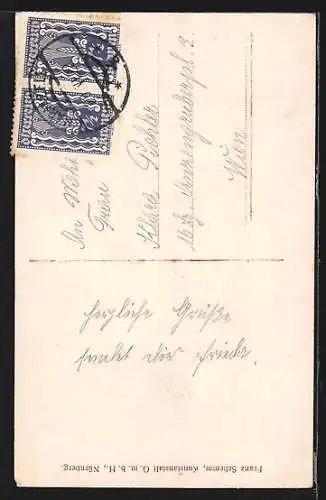 An Wohl
Frau
Klara Pichler
Wien
herzliche Grüße
sendet dir Friedl.
Franz Schemm, Kunstanstalt G. m. b. H., Nürnberg.